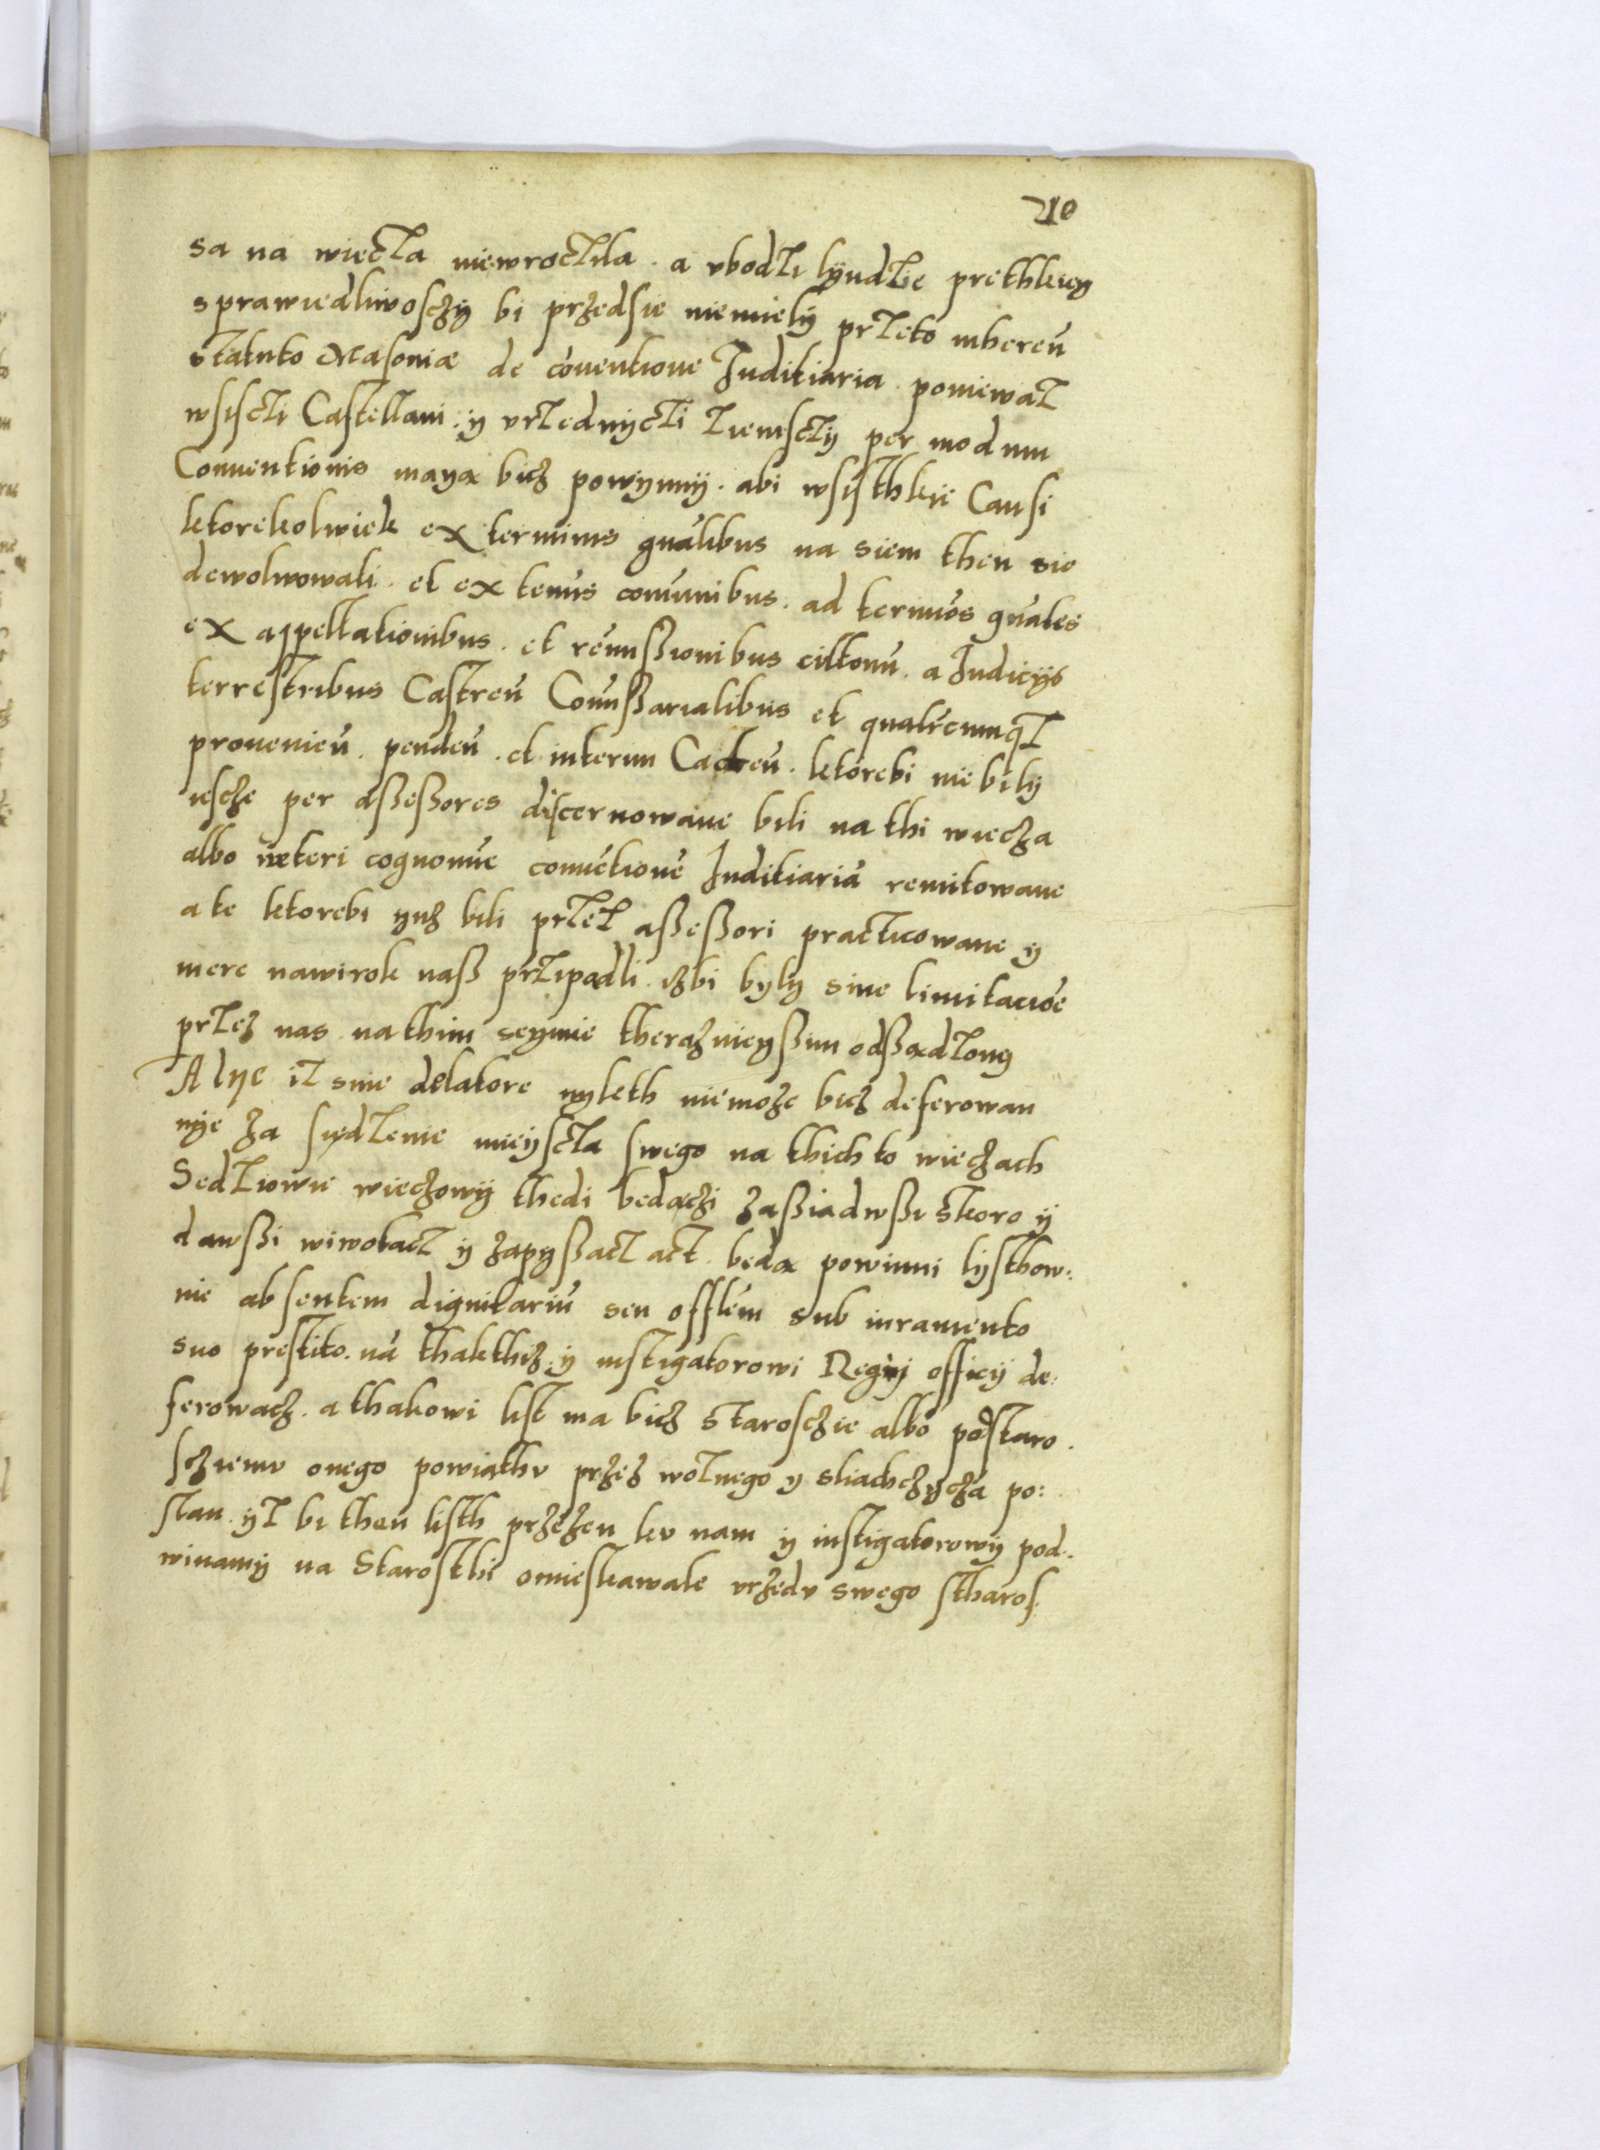 sa na wiecza niewroczila . a vbodzi lyudzie prethkiey
sprawiedliwosczy bi przedsie niemiely przeto inheren̄
statuto Masoniæ de cōuentione Juditiaria . poniewaz
wsisczi Castellani . y vrzednyczi ziemsczy per modum
Conuentionis mayą bicz powynny . abi wsisthkie Causi
ktorekolwiek ex terminis gnālibus na siem then sie
dewolwowali . et ex tenus comūnibus . ad termīos gnāles
ex appellationibus . et remissionibus . a Judicÿs
terrestribus Castren̄ Comissarialibus et
prouenien̄ . penden̄ . et interim . ktorebi nie bily
iescze per assessores discernowane bili na thi wiecza
albo cognomīe conuētionē Juditiariā remitowane
a te ktorebi yuz bili przez assessori practicowane y
mere nawirok nasz prziPadli . izbi byly sine limitacioē
przez nas na thim seymie theraznieyssim odsządzony
A lye iz sine delatore nykth niemoze bicz deferowan
nye za siedzenie mieysczа swego na thich to wieczach
Sedziowie wieczowy thedi bedączi zassiadwssi skoro y
dawssi wiwołacz y zapyssacz act . bedą powinni lysthow:
nie absentem dignitariū seu offlēm sub iuramento
suo prestito . nā thakthez . y instigatorowi Regnj officÿ de:
ferowacz . a thakowi list ma bicz Starosczie albo podstaro .
scziemv onego powiathv przez wolnego y sliachczycza po:
slan . yz bi then listh przezen kv nam y instigatorowy pod .
winamy na Starosthi omieskawale vrzedv swego stharos